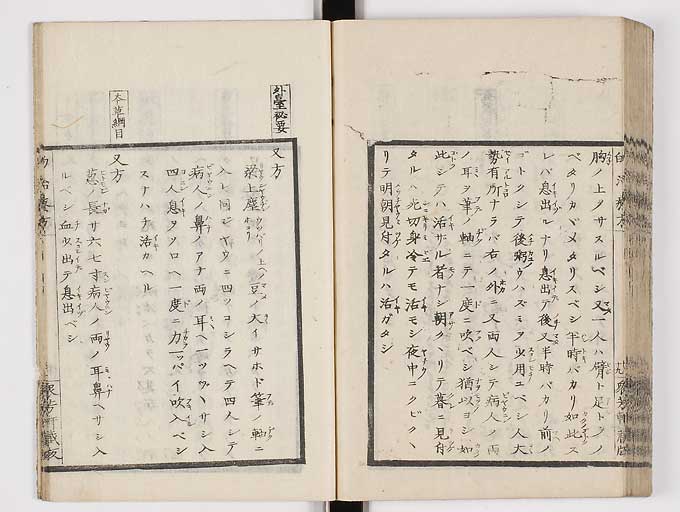 胸ノ上ヲサスルベシ又一人ハ臂ト足トヲノ
ベタリカヾメタリスベシ半時バカリ如此ス
レバ息出ルナリ息出テ後又半時バカリ前ノ
ゴトクシテ後粥ウハズミヲ少用ユベシ人大
勢有所ナラバ右ノ外ニ又両人シテ病人ノ両
ノ耳ヲ筆ノ軸ニテ一度ニ吹ベシ猶以ヨシ如
此シテハ活ザル者ナシ朝クヽリテ暮ニ見付
タルハ死切身冷テモ活モシ夜中ニクビクヽ
リテ明朝見付タルハ活ガタシ
外臺秘要
又方
梁上塵ウツバリノ上ヘノ豆ノ大イサホド筆ノ軸ニ
入レ同ジヤウニ四ツコシラヘテ四人シテ
病人ノ鼻ノアナ両ノ耳ヘ一ツヅヽサシ入
四人息ヲソロヘ一度ニ力一ツパイ吹入ベシ
スナハチ活カヘル
本草綱目
又方
葱ノ長サ六七寸病人ノ両ノ耳鼻ヘサシ入
ルベシ血少出テ息出ベシ